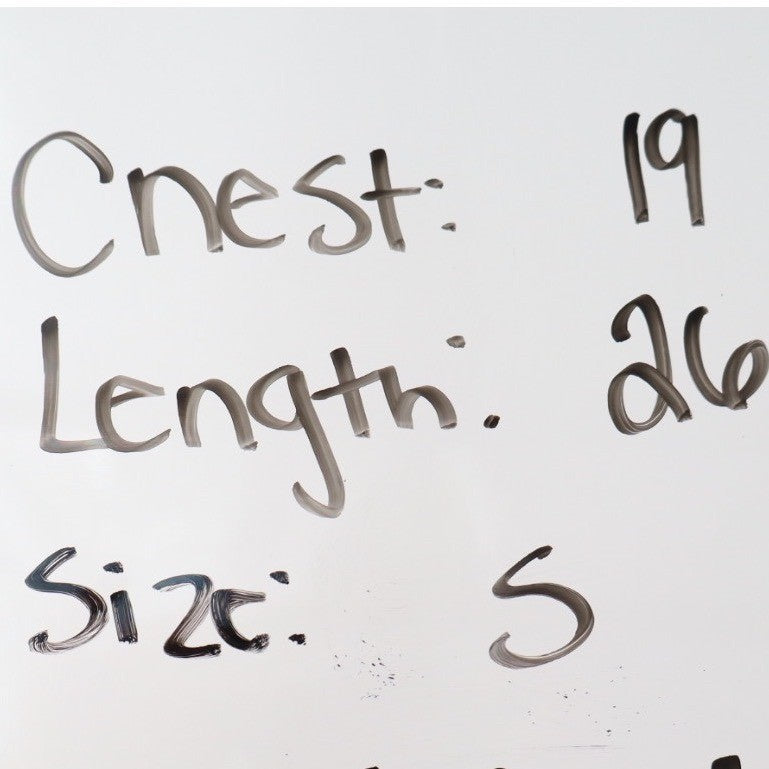 Chest: 19
Length: 26
Size: S